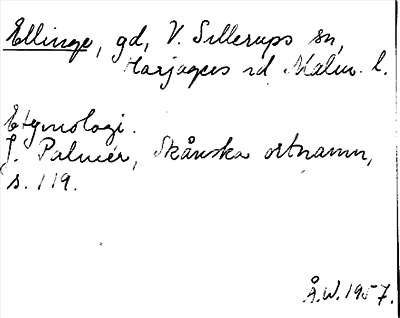 Ellinge, gd, V. Sallerups sn,
Harjagers hd Malm. l.
Etymologi.
J. Palmér, Skånska ortnamn,
s. 119.
Å.W. 1957.